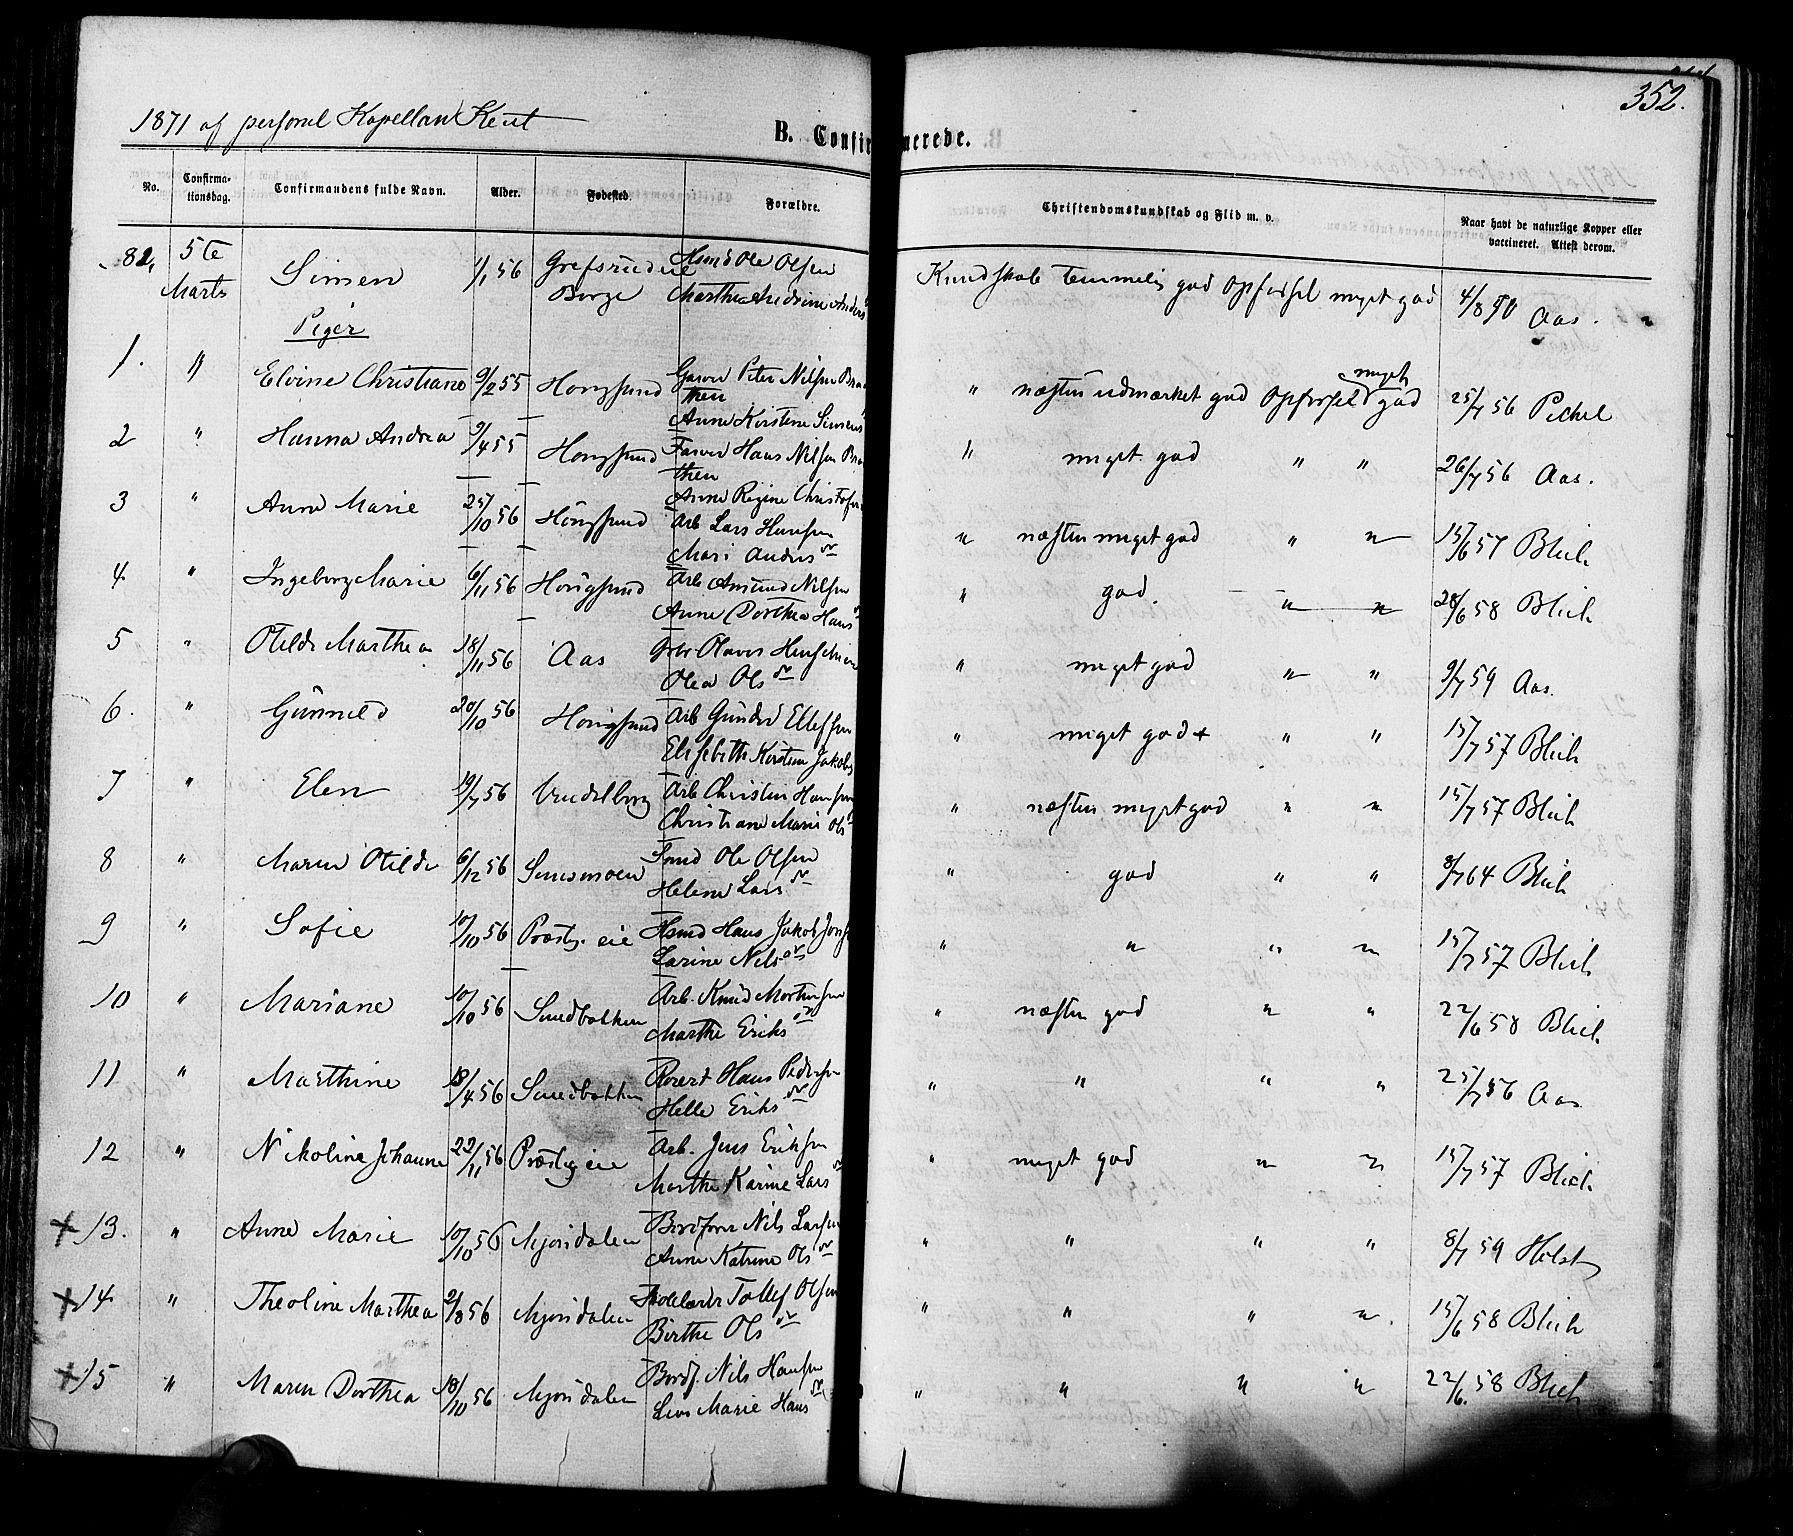 352.
1871 af personel Kapellan Kent
B. Confirmerede.
No. Confirmationsdag. Confirmandens fulde Navn. Alder. Fødested. Forældre. Christendomskundskab og Flid m. v. Naar havt de naturlige Kopper eller vaccineret. Attest derom.
82, 5te Marts Simen 1/1 56 Grefsrudeie Berge Hsmd Ole Olsen Kundskab temmelig god Opførsel meget god 4/8 Aas.
Marthe Andrine Anders
Piger
1. " Elvine Christiane 9/2 55 Hougsund Garver Peter Nilsen Braathen " næsten udmærket god Opførsel meget god 25/7 56 Pichel
Anne Kirstine Simens
2 " Hanna Andrea 9/4 55 Hougsund Farver Hans Nilsen Braathen " meget god " " 26/7 56 Aas.
Anne Regine Christofers
3 " Anne Marie 25/10 56 Hougsund Arb Lars Hansen " næsten meget god " " 15/6 57 Blich
Mari Anders dr
4 " Ingeborg Marie 6/11 56 Hougsund Arb Amund Nilsen " god. " " 28/6 58 Blich
Anne Dorthea Hans dr
5 " Otilde Marthea 18/11 56 Aas Olaves " meget god " " 9/7 59 Aas.
Olea Ols dr
6. " Gunnild 20/10 56 Hougsund Arb Gunder Ellefsen " meget god + " " 15/7 57 Blich
Elisabeth Kirstine Jakobs
7 " Elen 19/7 56 Vendelborg Arb Christen Hansen " næsten meget god " " 15/7 57 Blich
Christiane Marie Ols
8 " Maren Otilde 6/12 56 Smesmoen Smed Ole Olsen " god " " 8/7 64 Blich
Helene Lars dr
9 " Sofie 10/10 56 Præstg. eie Hsmd Hans Jakob " " " " 15/7 57 Blich
Larine Nils dr
10 " Mariane 10/10 56 Smedbakken Arb. Knud Mortensen " næsten god " " 22/6 58 Blich
Marthe Eriks dr
11 " Marthine 18/4 56 Smedbakken Hans Pedersen " " " " 25/7 56 Aas
Helle Eriks dr
12 " Nikoline Johanne 22/11 56 Præstg eie Arb. Jens Eriksen " meget god " " 15/7 57 Blich
Marthe Karine Lars dr
+ 13. " Anne Marie 10/10 56 Mjøndalen Nils Larsen " " " " 8/7 59 Holst
Anne Katrine Ols dr
+ 14 " Theoline Marthea 2/8 56 Mjøndalen Tollef Olsen " " " " 15/6 58 Blich
Birthe Ols dr
+ 15 " Maren Dorthea 18/10 56 Mjøndalen Bordf. Nils Hansen " " " " 22/6. 58 Blich
Lise Marie Hans dr